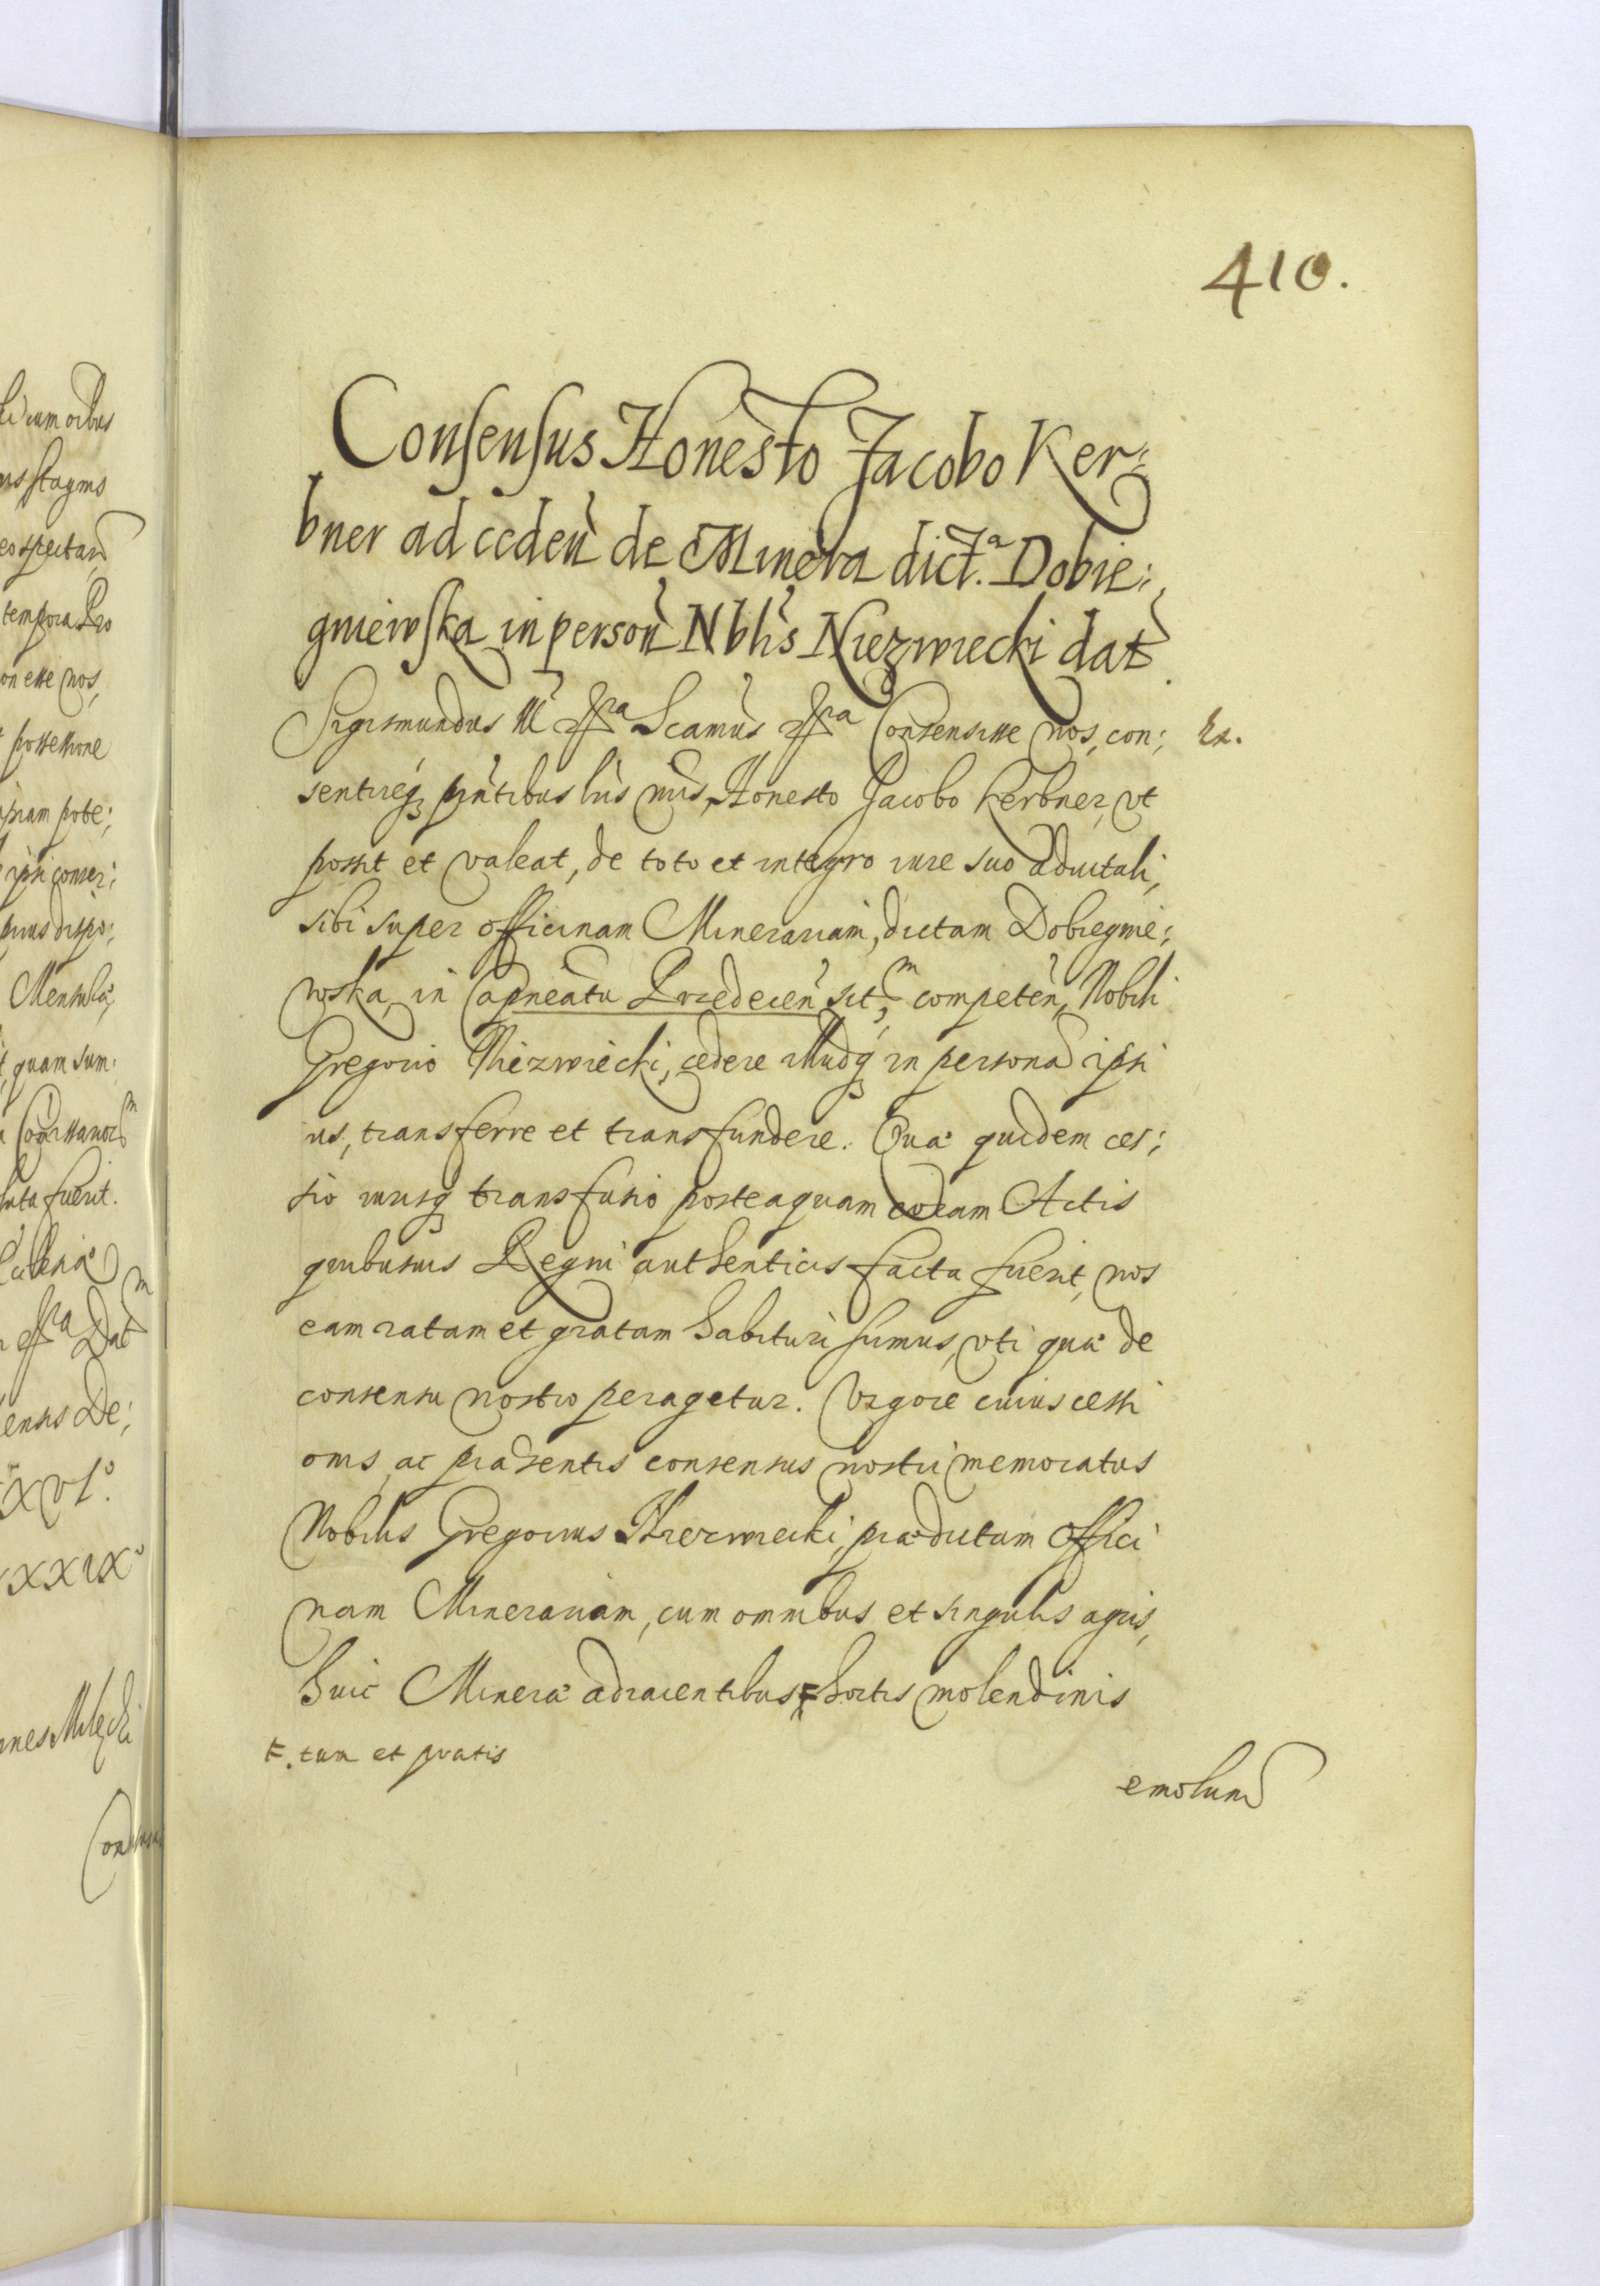 410.
Consensus Honesto Jacobo Ker=
bner ad ceden̄ de Minera dict.ª Dobie:
gniewska in person̄ Nblis̄ Niezwiecki dat
Sigismundus III &ra Scamus &ra Consensisse nos, con: Ex.
sentireq; pn̄tibus lr̄is nr̄is, Honesto Jacobo Kerbner, vt
possit et valeat, de toto et integro iure suo aduitali,
sibi super officinam Minerariam, dictam Dobiegnie:
wska, in Capn̄eatu Przedecen̄ sit,m competen̄, Nobili
Gregorio Niezwiecki, cedere illudq; in personā ipsi
us, transferre et transfundere. Qua quidem ces:
sio iurisq; transfusio posteaquam coram Actis
quibusuis Regni authenticis facta fuerit, nos
eam ratam et gratam habituri sumus, vti quæ de
consensu nostro peragetur. Vigore cuius cessi
onis, ac præsentis consensus nostri memoratus
Nobilis Gregorius Niezwiecki, prædictam offici
nam Minerariam, cum omnibus et singulis agris,
huic Mineræ adiacentibus hortis molendinis
tum et pratis
emolum
lidium oibus
stagnis
spectan̄
tempora
on esse nos,
possessione
pote:
ipsi conser:
dispo:
Mensula,
quam sum:
fuerit.
&ra Dat
ensis De:
XVIº.
XXIXº